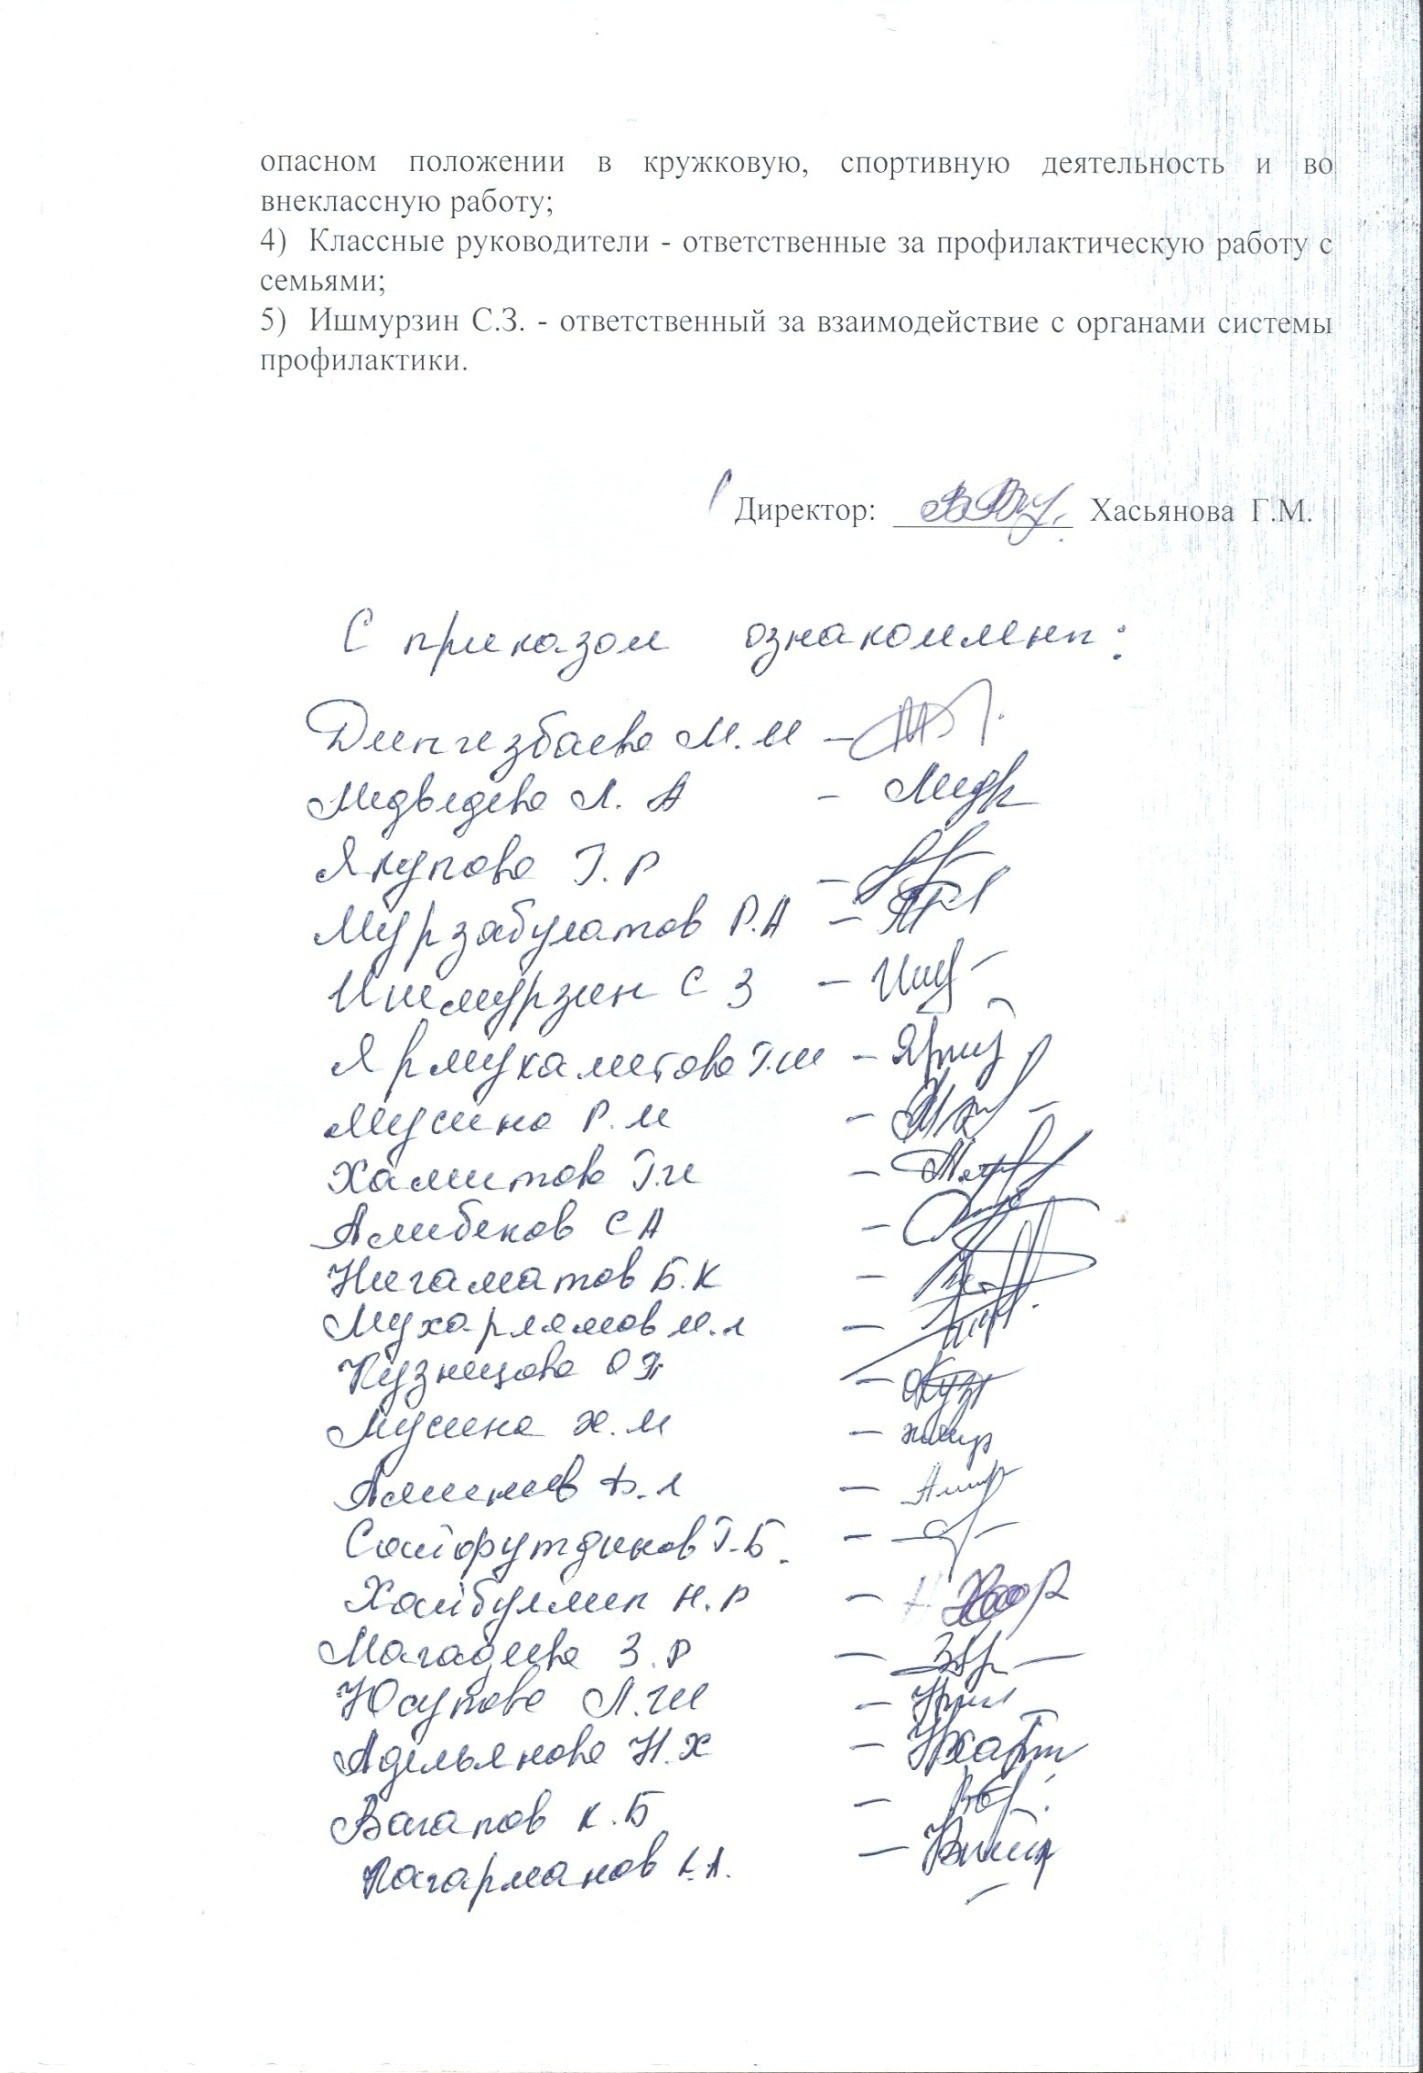 опасном положении в кружковую, спортивную деятельность и во
внеклассную работу;
4) Классные руководители - ответственные за профилактическую работу с
семьями;
5) Ишмурзин С.З. - ответственный за взаимодействие с органами системы
профилактики.
Директор: Хасьянова Г.М.
С приказом ознакомлены:
Дингизбаева М.М -
Медведева Л. А -
Якупова Г. Р -
Мурзабулатов Р.А -
Ишмурзин С З -
Ярмухаметова Г.Ш -
Мусина Р. М -
Хамитова Г.И -
Алибеков С А -
Нигаматов Б.К -
Мухарлямов М.Л -
Кузнецова О П -
Мусина Х. М -
Аминев -
Сайфутдинов Г.Б. -
Хайбуллин Н.Р -
Магадеева З.Р -
Юсупова Л.Ш -
Адельянова Н.Х -
Вагапов К.Б -
Кагарманов К.А. -